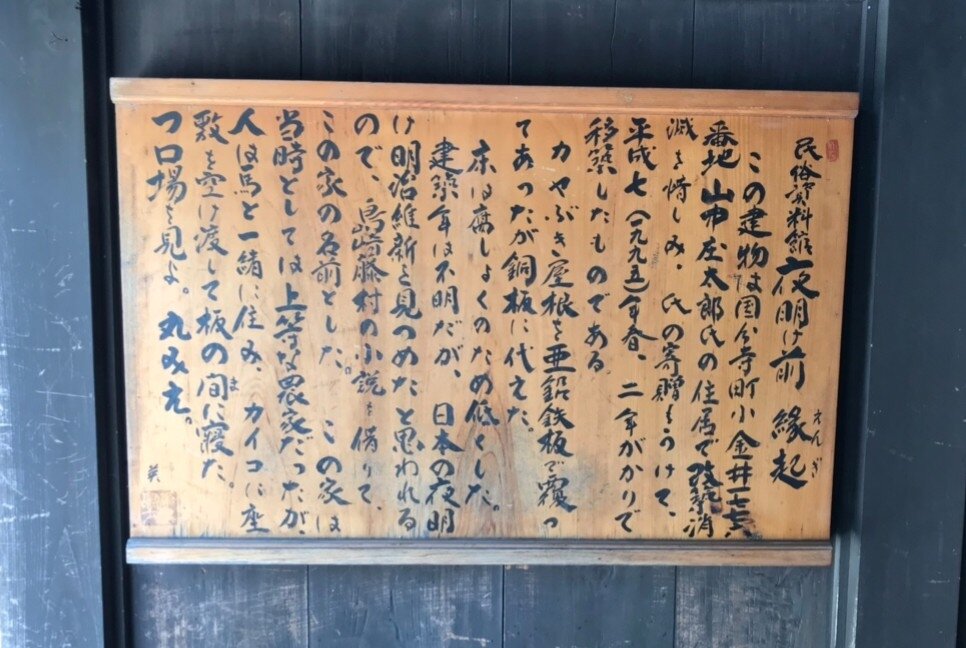 民俗資料館 夜明け前 縁起
えんぎ
この建物は国分寺町小金井一七七
番地 山中庄太郎氏の住居で改築消
滅を惜しみ、氏の寄贈をうけて、
平成七(一九九五)年春、二年がかりで
移築したものである。
カヤぶき屋根を亜鉛鉄板で覆っ
てあったが銅板に代えた。
床は腐しょくのため低くした。
建築年は不明だが、日本の夜明
け明治維新を見つめたと思われる
ので、島崎藤村の小説を借りて、
この家の名前とした。この家は
当時としては上等な農家だったが、
人は馬と一緒に住み、カイコに座
敷を空け渡して板の間に寝た。
ま
つロ場を見よ。丸みえ。
英